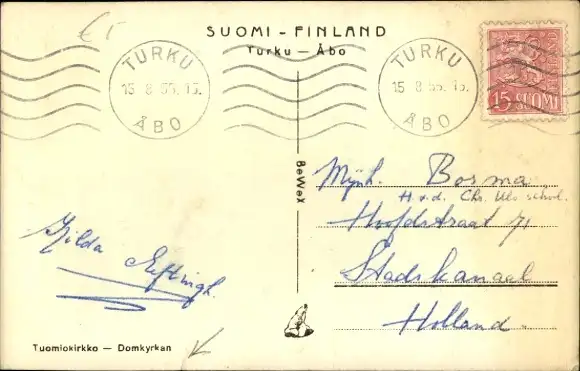 SUOMI - FINLAND
Turku — Åbo
TURKU
15.8.55.15.
ÅBO
TURKU
15.8.55.15.
ÅBO
15 SUOMI
BeWeX
Mijnh. Bosma
H.v.d. Chr. Ulo school.
Hoofdstraat 71
Stadskanaal
Holland.
Gilda
Tuomiokirkko — Domkyrkan